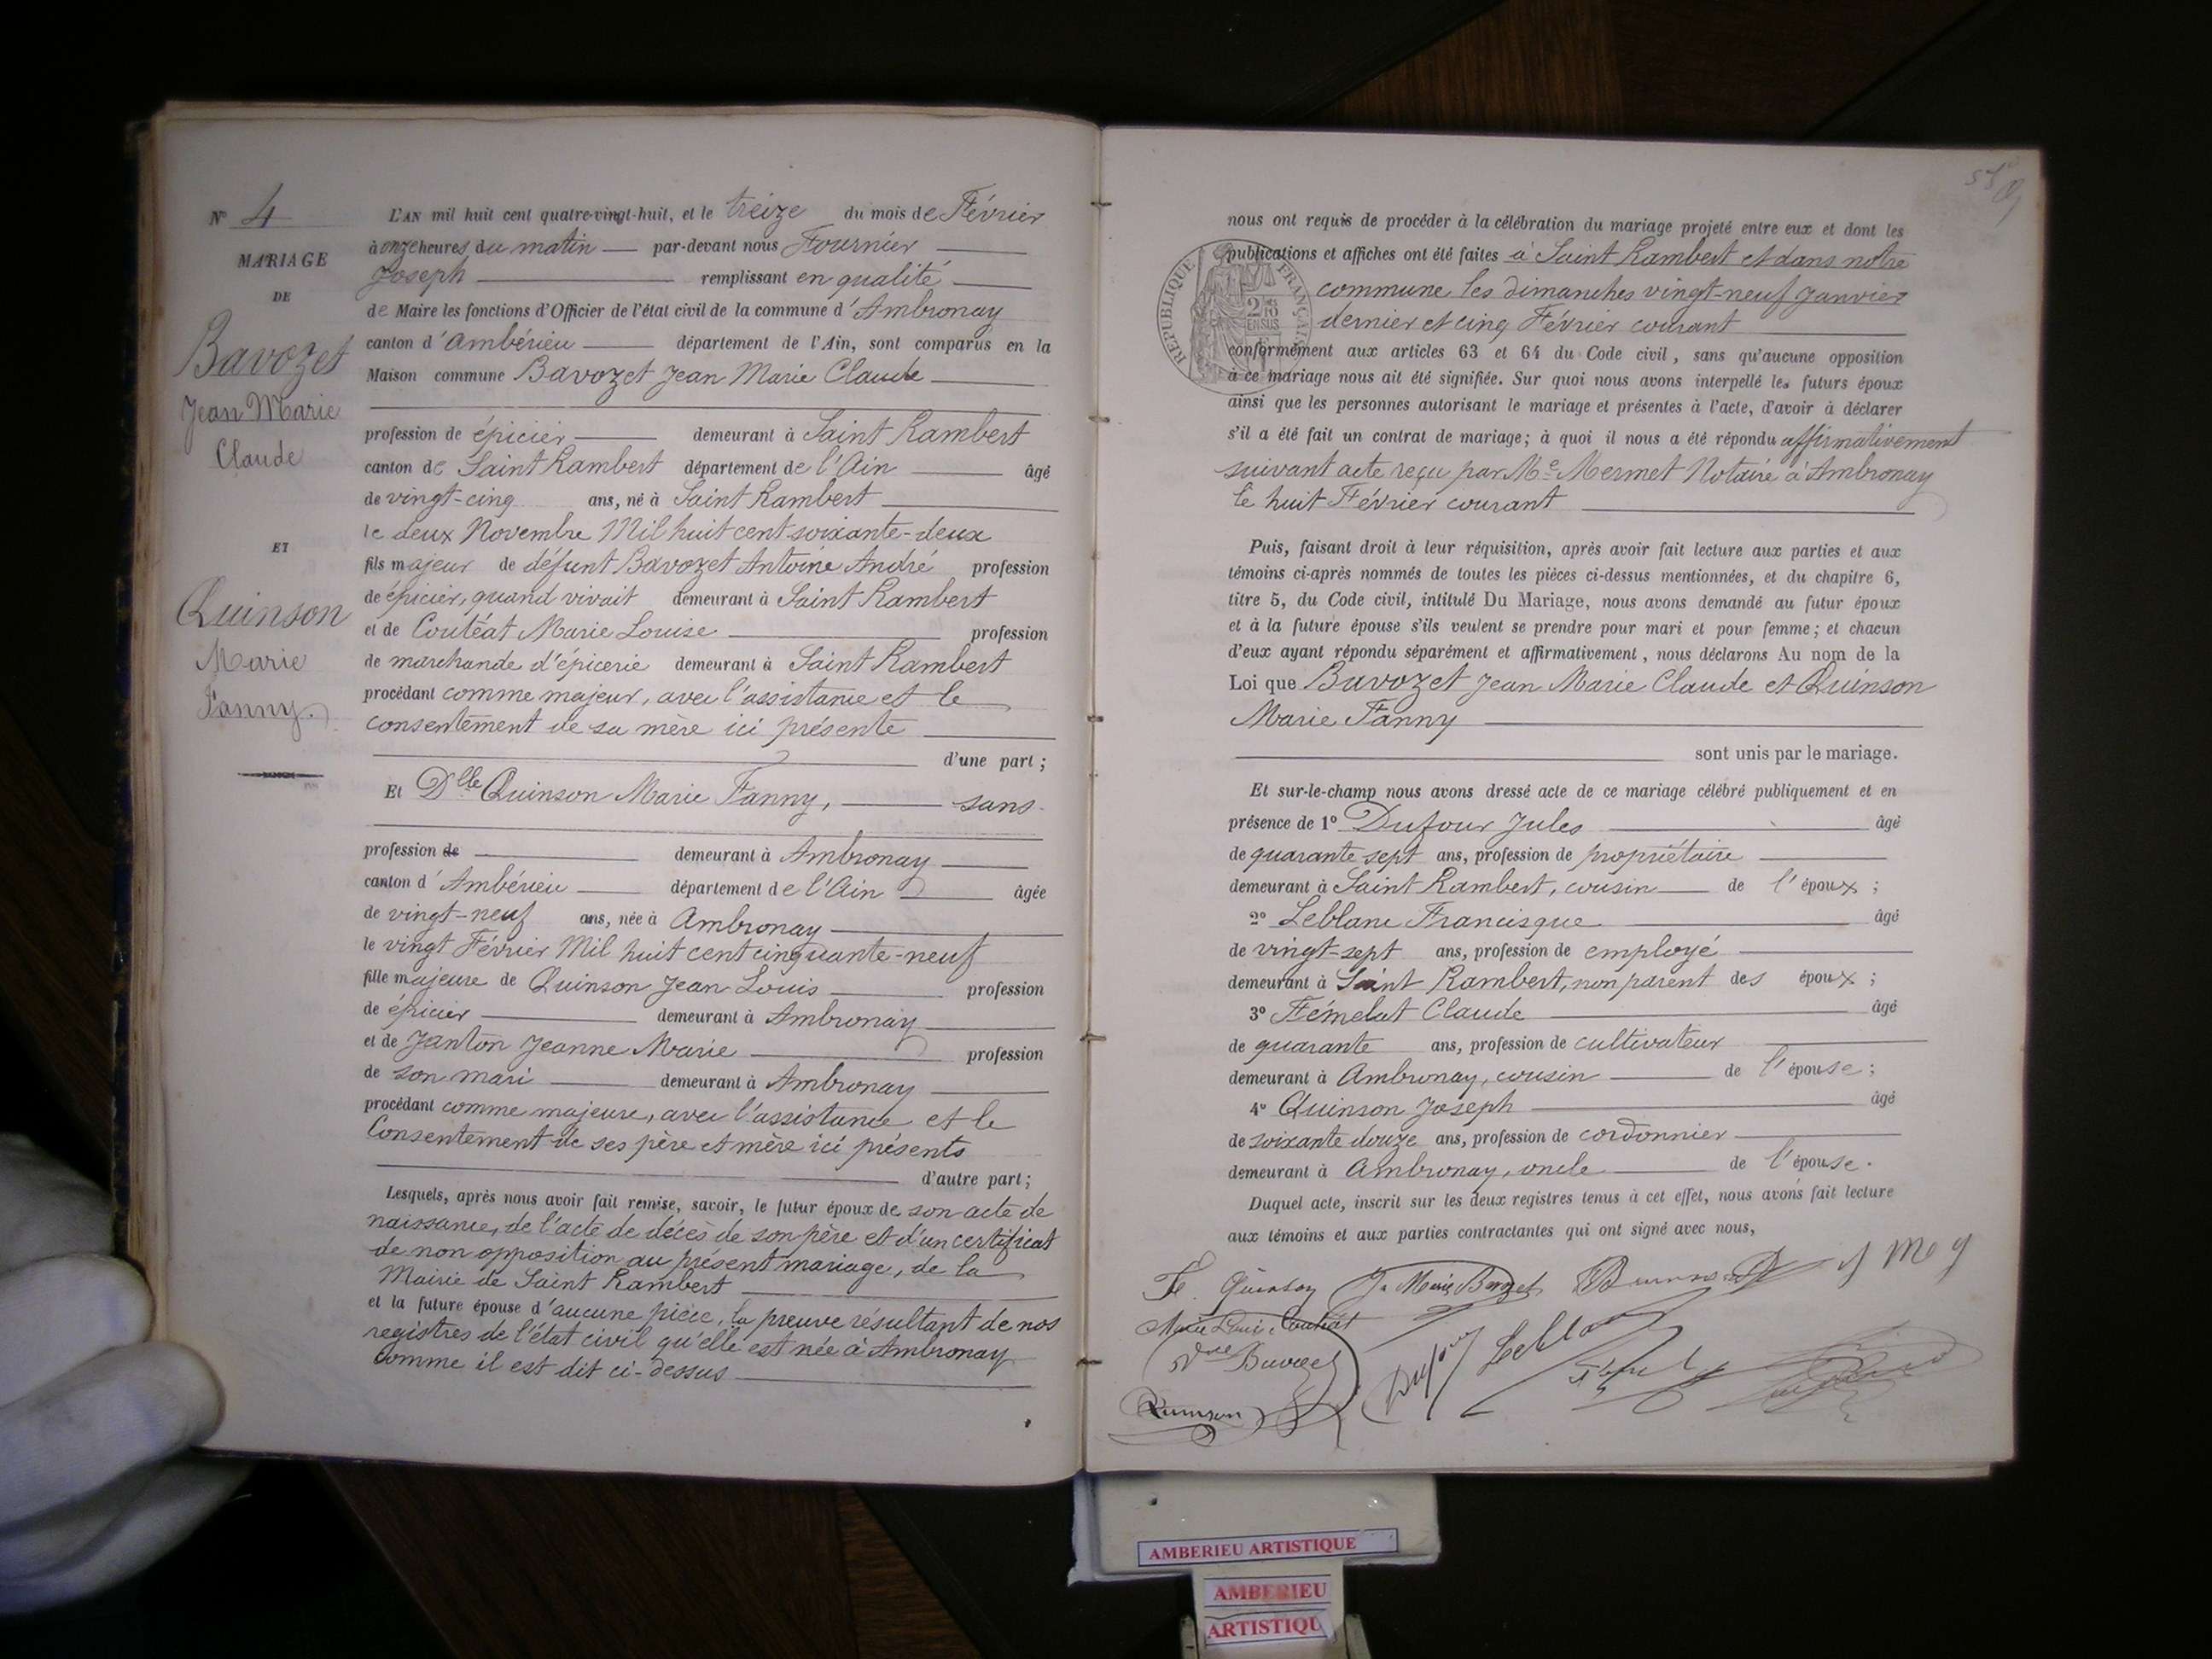 N° 4
MARIAGE
DE
Bavozet
Jean Marie
Claude
ET
Quinson
Marie
Fanny.
L'AN mil huit cent quatre-vingt-huit, et le treize du mois de Février
à onze heures du matin par-devant nous Fournier
Joseph remplissant en qualité
de Maire les fonctions d'Officier de l'état civil de la commune d'Ambronay
canton d'Ambérieu département de l'Ain, sont comparus en la
Maison commune Bavozet Jean Marie Claude
profession de épicier demeurant à Saint Rambert
canton de Saint Rambert département de l'Ain âgé
de vingt-cinq ans, né à Saint Rambert
le deux Novembre Mil huit cent soixante-deux
fils majeur de défunt Bavozet Antoine André profession
de épicier, quand vivait demeurant à Saint Rambert
et de Coutéat Marie Louise profession
de marchande d'épicerie demeurant à Saint Rambert
procédant comme majeur, avec l'assistance et le
consentement de sa mère ici présente
d'une part ;
Et Dlle Quinson Marie Fanny, sans
profession de demeurant à Ambronay
canton d'Ambérieu département de l'Ain âgée
de vingt-neuf ans, née à Ambronay
le vingt Février Mil huit cent cinquante-neuf
fille majeure de Quinson Jean Louis profession
de épicier demeurant à Ambronay
et de Janton Jeanne Marie profession
de son mari demeurant à Ambronay
procédant comme majeure, avec l'assistance et le
Consentement de ses père et mère ici présents
d'autre part ;
Lesquels, après nous avoir fait remise, savoir, le futur époux de son acte de
naissance, de l'acte de décès de son père et d'un certificat
de non opposition au présent mariage, de la
Mairie de Saint Rambert
et la future épouse d'aucune pièce, la preuve résultant de nos
registres de l'état civil qu'elle est née à Ambronay
comme il est dit ci-dessus
nous ont requis de procéder à la célébration du mariage projeté entre eux et dont les
publications et affiches ont été faites à Saint Rambert et dans notre
commune les dimanches vingt-neuf Janvier
dernier et cinq Février courant
RÉPUBLIQUE FRANÇAISE
conformément aux articles 63 et 64 du Code civil, sans qu'aucune opposition
à ce mariage nous ait été signifiée. Sur quoi nous avons interpellé les futurs époux
ainsi que les personnes autorisant le mariage et présentes à l'acte, d'avoir à déclarer
s'il a été fait un contrat de mariage; à quoi il nous a été répondu affirmativement
suivant acte reçu par Me Mermet Notaire à Ambronay
le huit Février courant
Puis, faisant droit à leur réquisition, après avoir fait lecture aux parties et aux
témoins ci-après nommés de toutes les pièces ci-dessus mentionnées, et du chapitre 6,
titre 5, du Code civil, intitulé Du Mariage, nous avons demandé au futur époux
et à la future épouse s'ils veulent se prendre pour mari et pour femme ; et chacun
d'eux ayant répondu séparément et affirmativement, nous déclarons Au nom de la
Loi que Bavozet Jean Marie Claude et Quinson
Marie Fanny
sont unis par le mariage.
Et sur-le-champ nous avons dressé acte de ce mariage célébré publiquement et en
présence de 1° Dufour Jules âgé
de quarante sept ans, profession de propriétaire
demeurant à Saint Rambert, cousin de l'époux ;
2° Leblanc Francisque âgé
de vingt-sept ans, profession de employé
demeurant à Saint Rambert, non parent des époux ;
3° Fémelat Claude âgé
de quarante ans, profession de cultivateur
demeurant à Ambronay, cousin de l'épouse ;
4° Quinson Joseph âgé
de soixante douze ans, profession de cordonnier
demeurant à Ambronay, oncle de l'épouse.
Duquel acte, inscrit sur les deux registres tenus à cet effet, nous avons fait lecture
aux témoins et aux parties contractantes qui ont signé avec nous,
Quinson
Marie Louise
Vve Bavozet
Dufour
Leblanc
Quinson
AMBERIEU ARTISTIQUE
AMBERIEU
ARTISTIQU